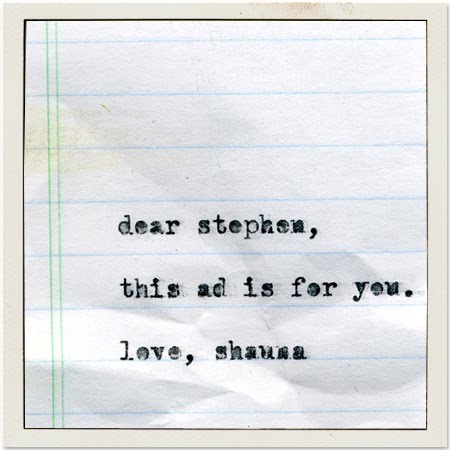 dear stephen,
this ad is for you.
love, shauna